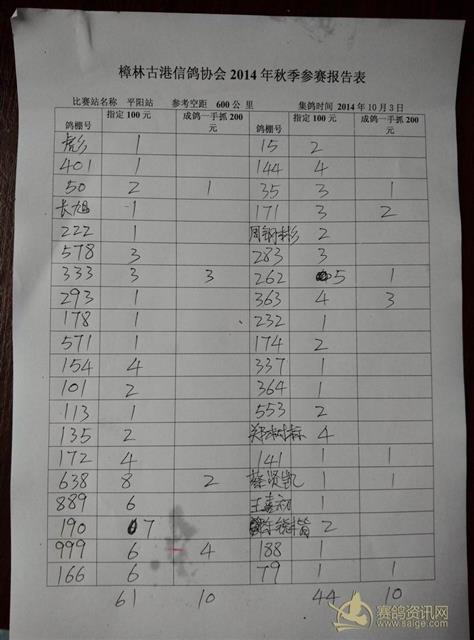 樟林古港信鸽协会 2014 年秋季参赛报告表
比赛站名称 平阳站 参考空距 600 公 里 集鸽时间 2014 年 10 月 3 日
鸽棚号 指定 100 元 成鸽一手抓 200 元 鸽棚号 指定 100 元 成鸽一手抓 200 元
彪 1 15 2
401 1 144 4
50 2 1 35 3 1
长旭 1 171 3 2
222 1 周钢彬 2
578 3 283 3
333 3 3 262 5 1
293 1 363 4 3
178 1 232 1
571 1 174 2
154 4 337 1
101 2 364 1
113 1 553 2
135 2 郑树标 4
172 4 141 1 1
638 8 2 蔡贤凯 1 1
889 6 1
190 7 2
999 6 4 188 1
166 6 79 1 1
61 10 44 10
赛鸽资讯网
www.saige.com